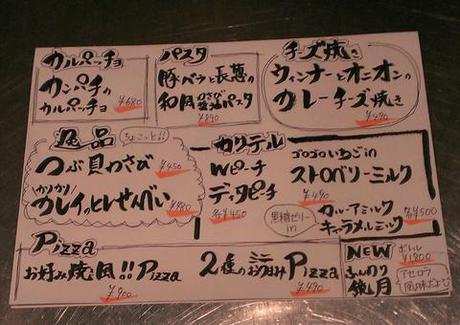 カルパッチョ
カンパチの
カルパッチョ
¥680
パスタ
豚バラと長葱の
和風わさび醤油パスタ
¥890
チーズ焼き
ウィンナーとオニオンの
カレーチーズ焼き
¥490
逸品
ちょこっと!!
つぶ貝わさび
¥450
かりかり
カレイっとしせんべい
カクテル
Wピーチ
ディタピーチ
各¥450
ゴロゴロいちごin
ストロベリーミルク
¥490
黒糖ゼリーin
カルーアミルク
キャラメルミルク
各¥500
Pizza
お好み焼き風!!Pizza
¥900
2種のミニおつまみPizza
¥490
NEW
ボトル
¥1800
ふんわり
鏡月
アセロラ
風味だよ